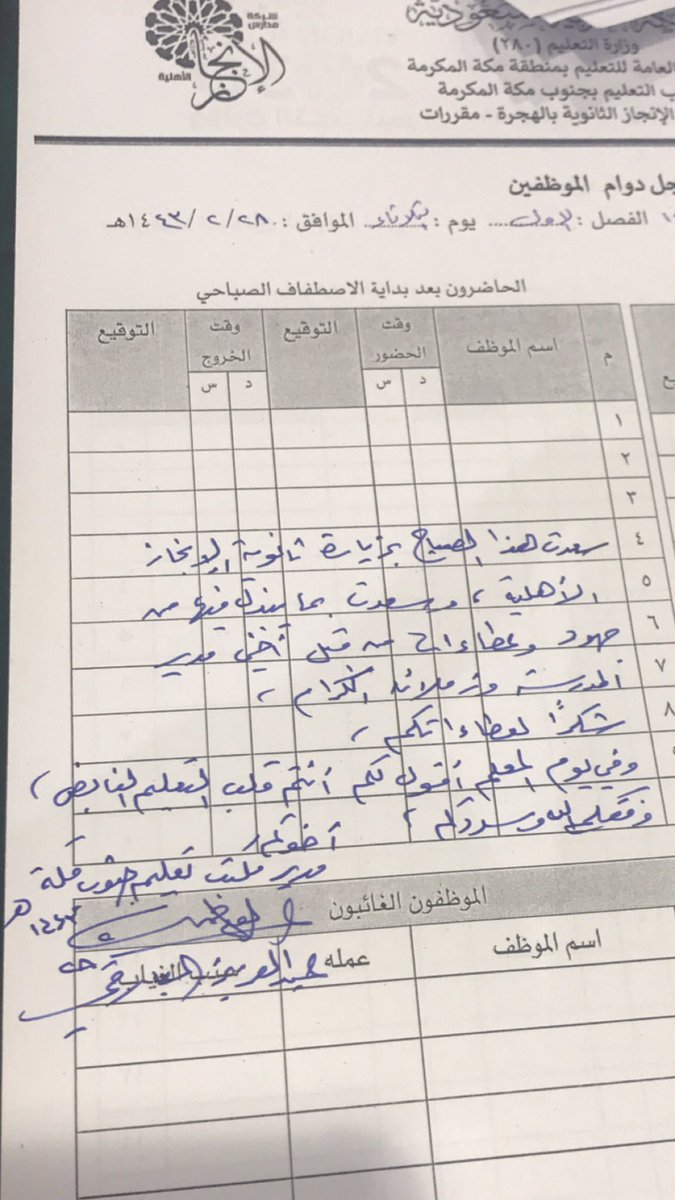 شركة مدارس
الإنجاز
الأهلية
وزارة التعليم (٢٨٠)
العامة للتعليم بمنطقة مكة المكرمة
ب التعليم بجنوب مكة المكرمة
الإنجاز الثانوية بالهجرة - مقررات
جل دوام الموظفين
الفصل : الأول .... يوم : الثلاثاء الموافق : ٢٨ / ٢ / ١٤٤٣هـ
الحاضرون بعد بداية الاصطفاف الصباحي
م اسم الموظف وقت الحضور التوقيع وقت الخروج التوقيع
د س د س
١
٢
٣
٤ سعدت هذا الصباح بزيارة ثانوية الإنجاز
٥ الأهلية ، وسعدت بما يبذل فيها من
٦ جهود وعطاءات من قبل أخي مدير
٧ المدرسة وزملائه الكرام ،
٨ شكرًا لعطاءاتكم ،
وفي يوم المعلم أقول لكم أنتم قلب التعليم النابض ،
وفقكم الله وسددكم ، أخوكم /
مدير مكتب تعليم جنوب مكة
الموظفون الغائبون
١٤٤٣هـ
اسم الموظف عمله سبب الغياب
عبدالعزيز